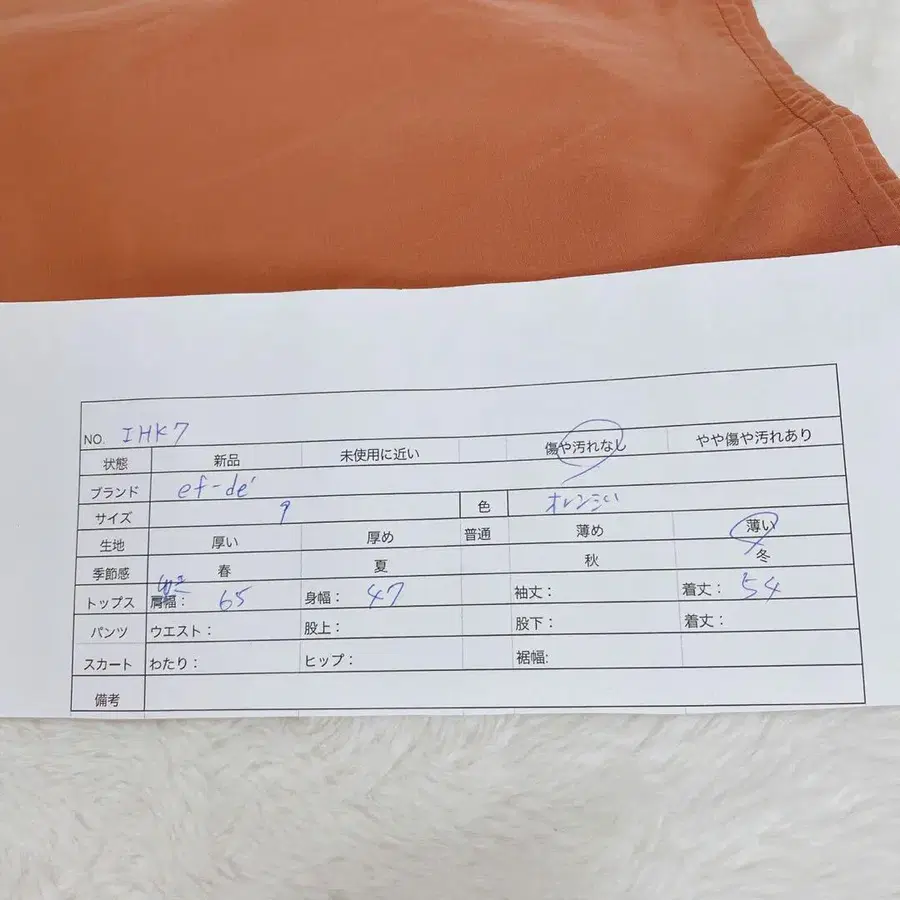 NO. IHK7
状態 新品 未使用に近い 傷や汚れなし やや傷や汚れあり
ブランド ef-de'
サイズ 9 色
生地 厚い 厚め 普通 薄め 薄い
季節感 春 夏 秋 冬
トップス 肩幅: 65 身幅: 47 袖丈: 着丈: 54
パンツ ウエスト: 股上: 股下: 着丈:
スカート わたり: ヒップ: 裾幅:
備考